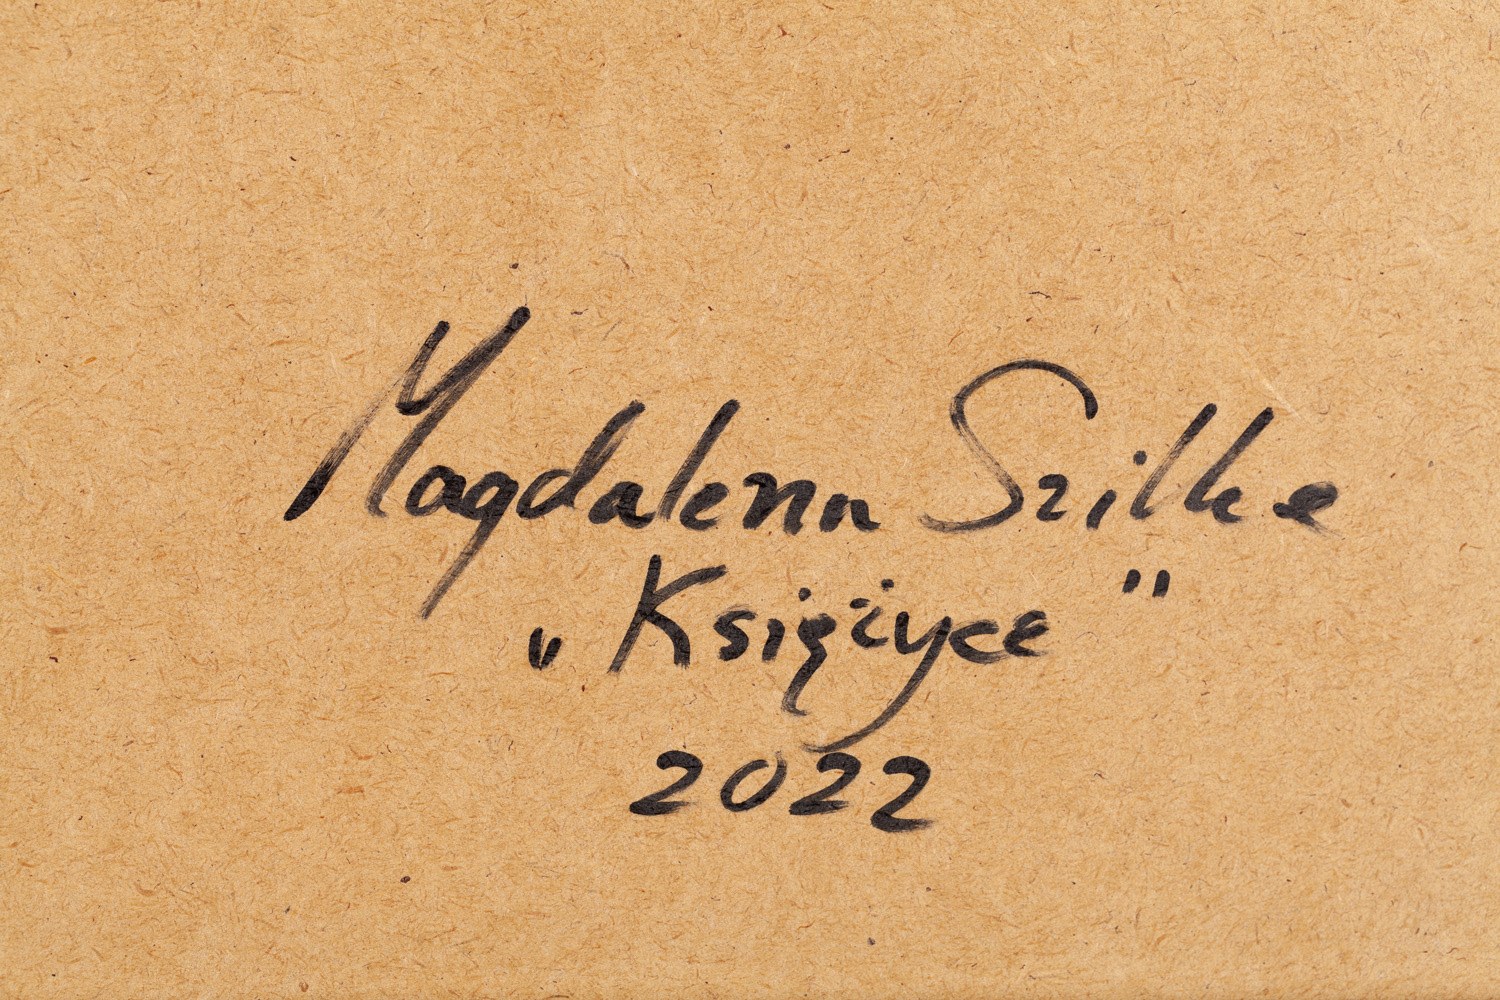 Magdalena Szilke
„Księżyce"
2022